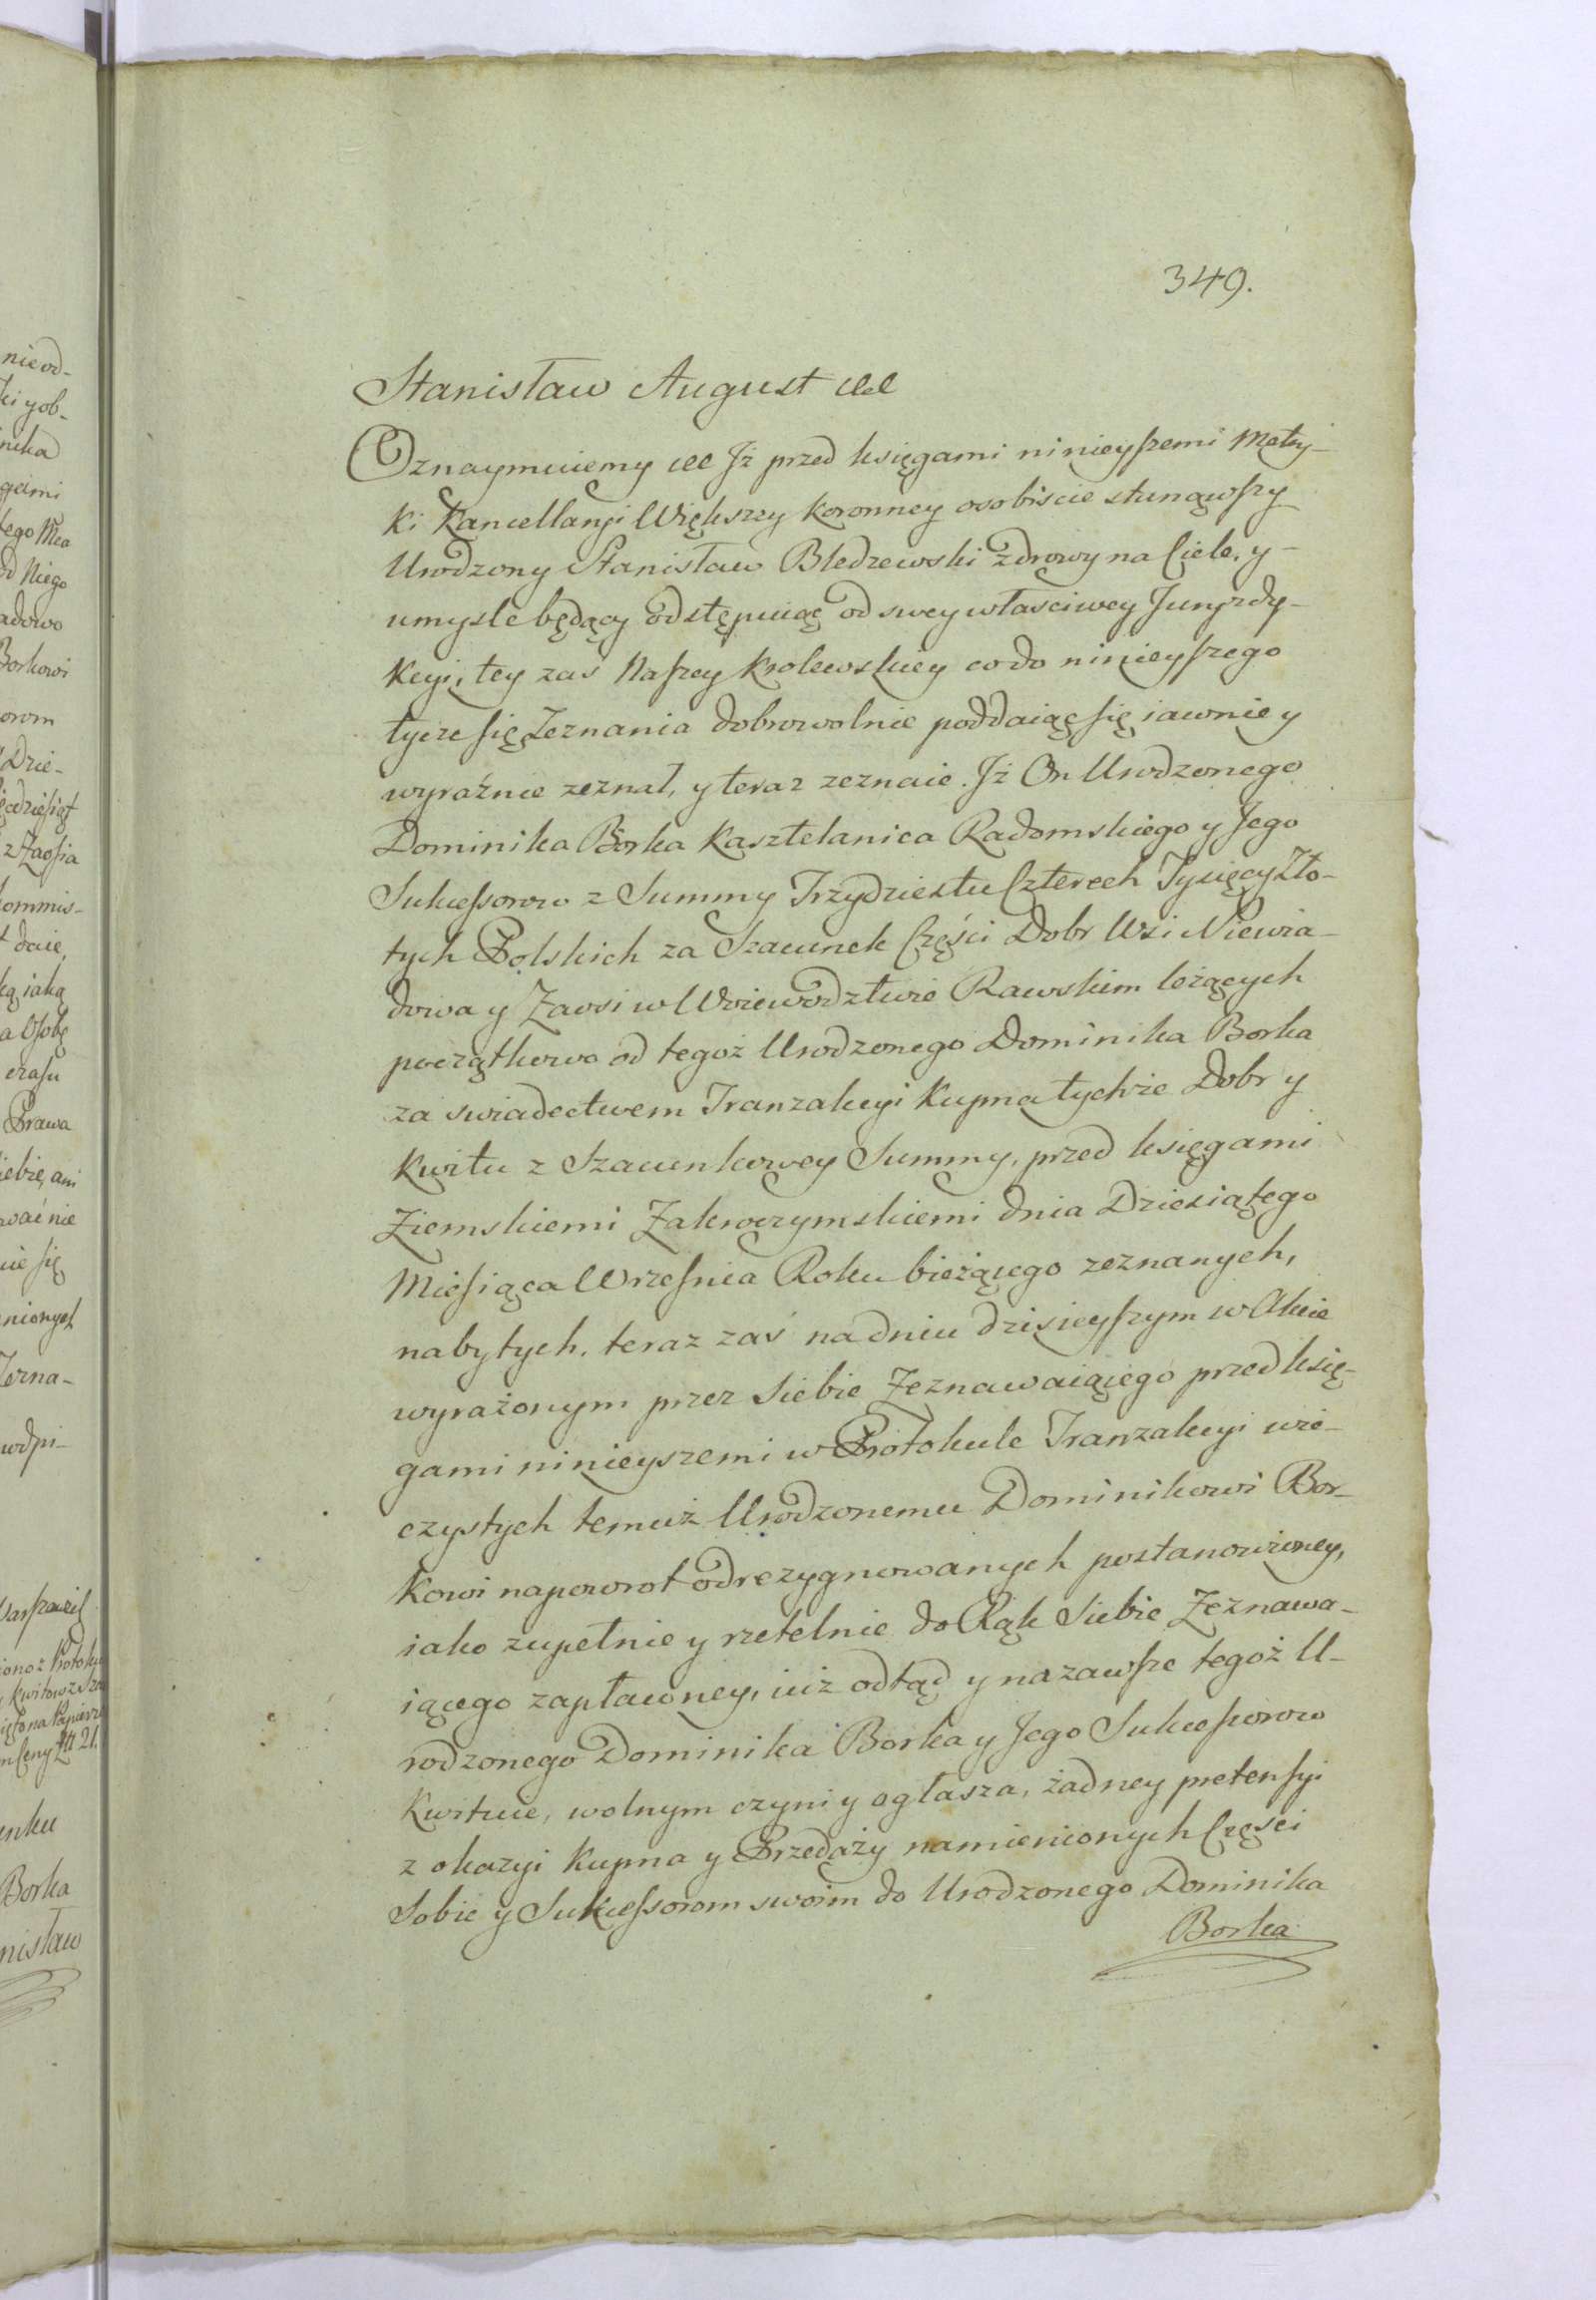 349.
Stanisław August etc
Oznaymuiemy etc Jż przed księgami ninieyszemi Metry-
ki Kancellaryi Większey Koronney osobiscie stanąwszy
Urodzony Stanisław Bledzewski zdrowy na Ciele, y-
umysle będący odstępuiąc od swey własciwey Juryzdy-
kcyi, tey zas Naszey Krolewskiey co do ninieyszego
tycze się Zeznania dobrowolnie poddaiąc się iawnie y
wyraźnie zeznał, y teraz zeznaie. Jż On Urodzonego
Dominika Borka Kasztelanica Radomskiego y Jego
Sukcessorow z Summy Trzydziestu Czterech Tysięcy Zło-
tych Polskich za Szacunek Części Dobr Wsi Niewia-
dowa y Zaosi w Woiewodztwie Rawskim leżących
początkowo od tegoż Urodzonego Dominika Borka
za swiadectwem Tranzakcyi Kupna tychże Dobr y
Kwitu z Szacunkowey Summy, przed księgami
Ziemskiemi Zakroczymskiemi dnia Dziesiątego
Miesiąca Wrzesnia Roku bieżącego zeznanych,
nabytych, teraz zaś na dniu dzisieyszym w Akcie
wyrażonym przez Siebie Zeznawaiącego przed księ-
gami ninieyszemi w Protokule Tranzakcyi wie-
czystych temuż Urodzonemu Dominikowi Bor-
kowi napowrot odrezygnowanych postanowioney,
iako zupełnie y rzetelnie do Rąk Siebie Zeznawa-
iącego zapłaconey, iuż odtąd y nazawsze tegoż U-
rodzonego Dominika Borka y Jego Sukcessorow
Kwituie, wolnym czyni y ogłasza, żadney pretensyi
z okazyi Kupna y Przedaży namienionych Części
Sobie y Sukcessorom swoim do Urodzonego Dominika
Borka